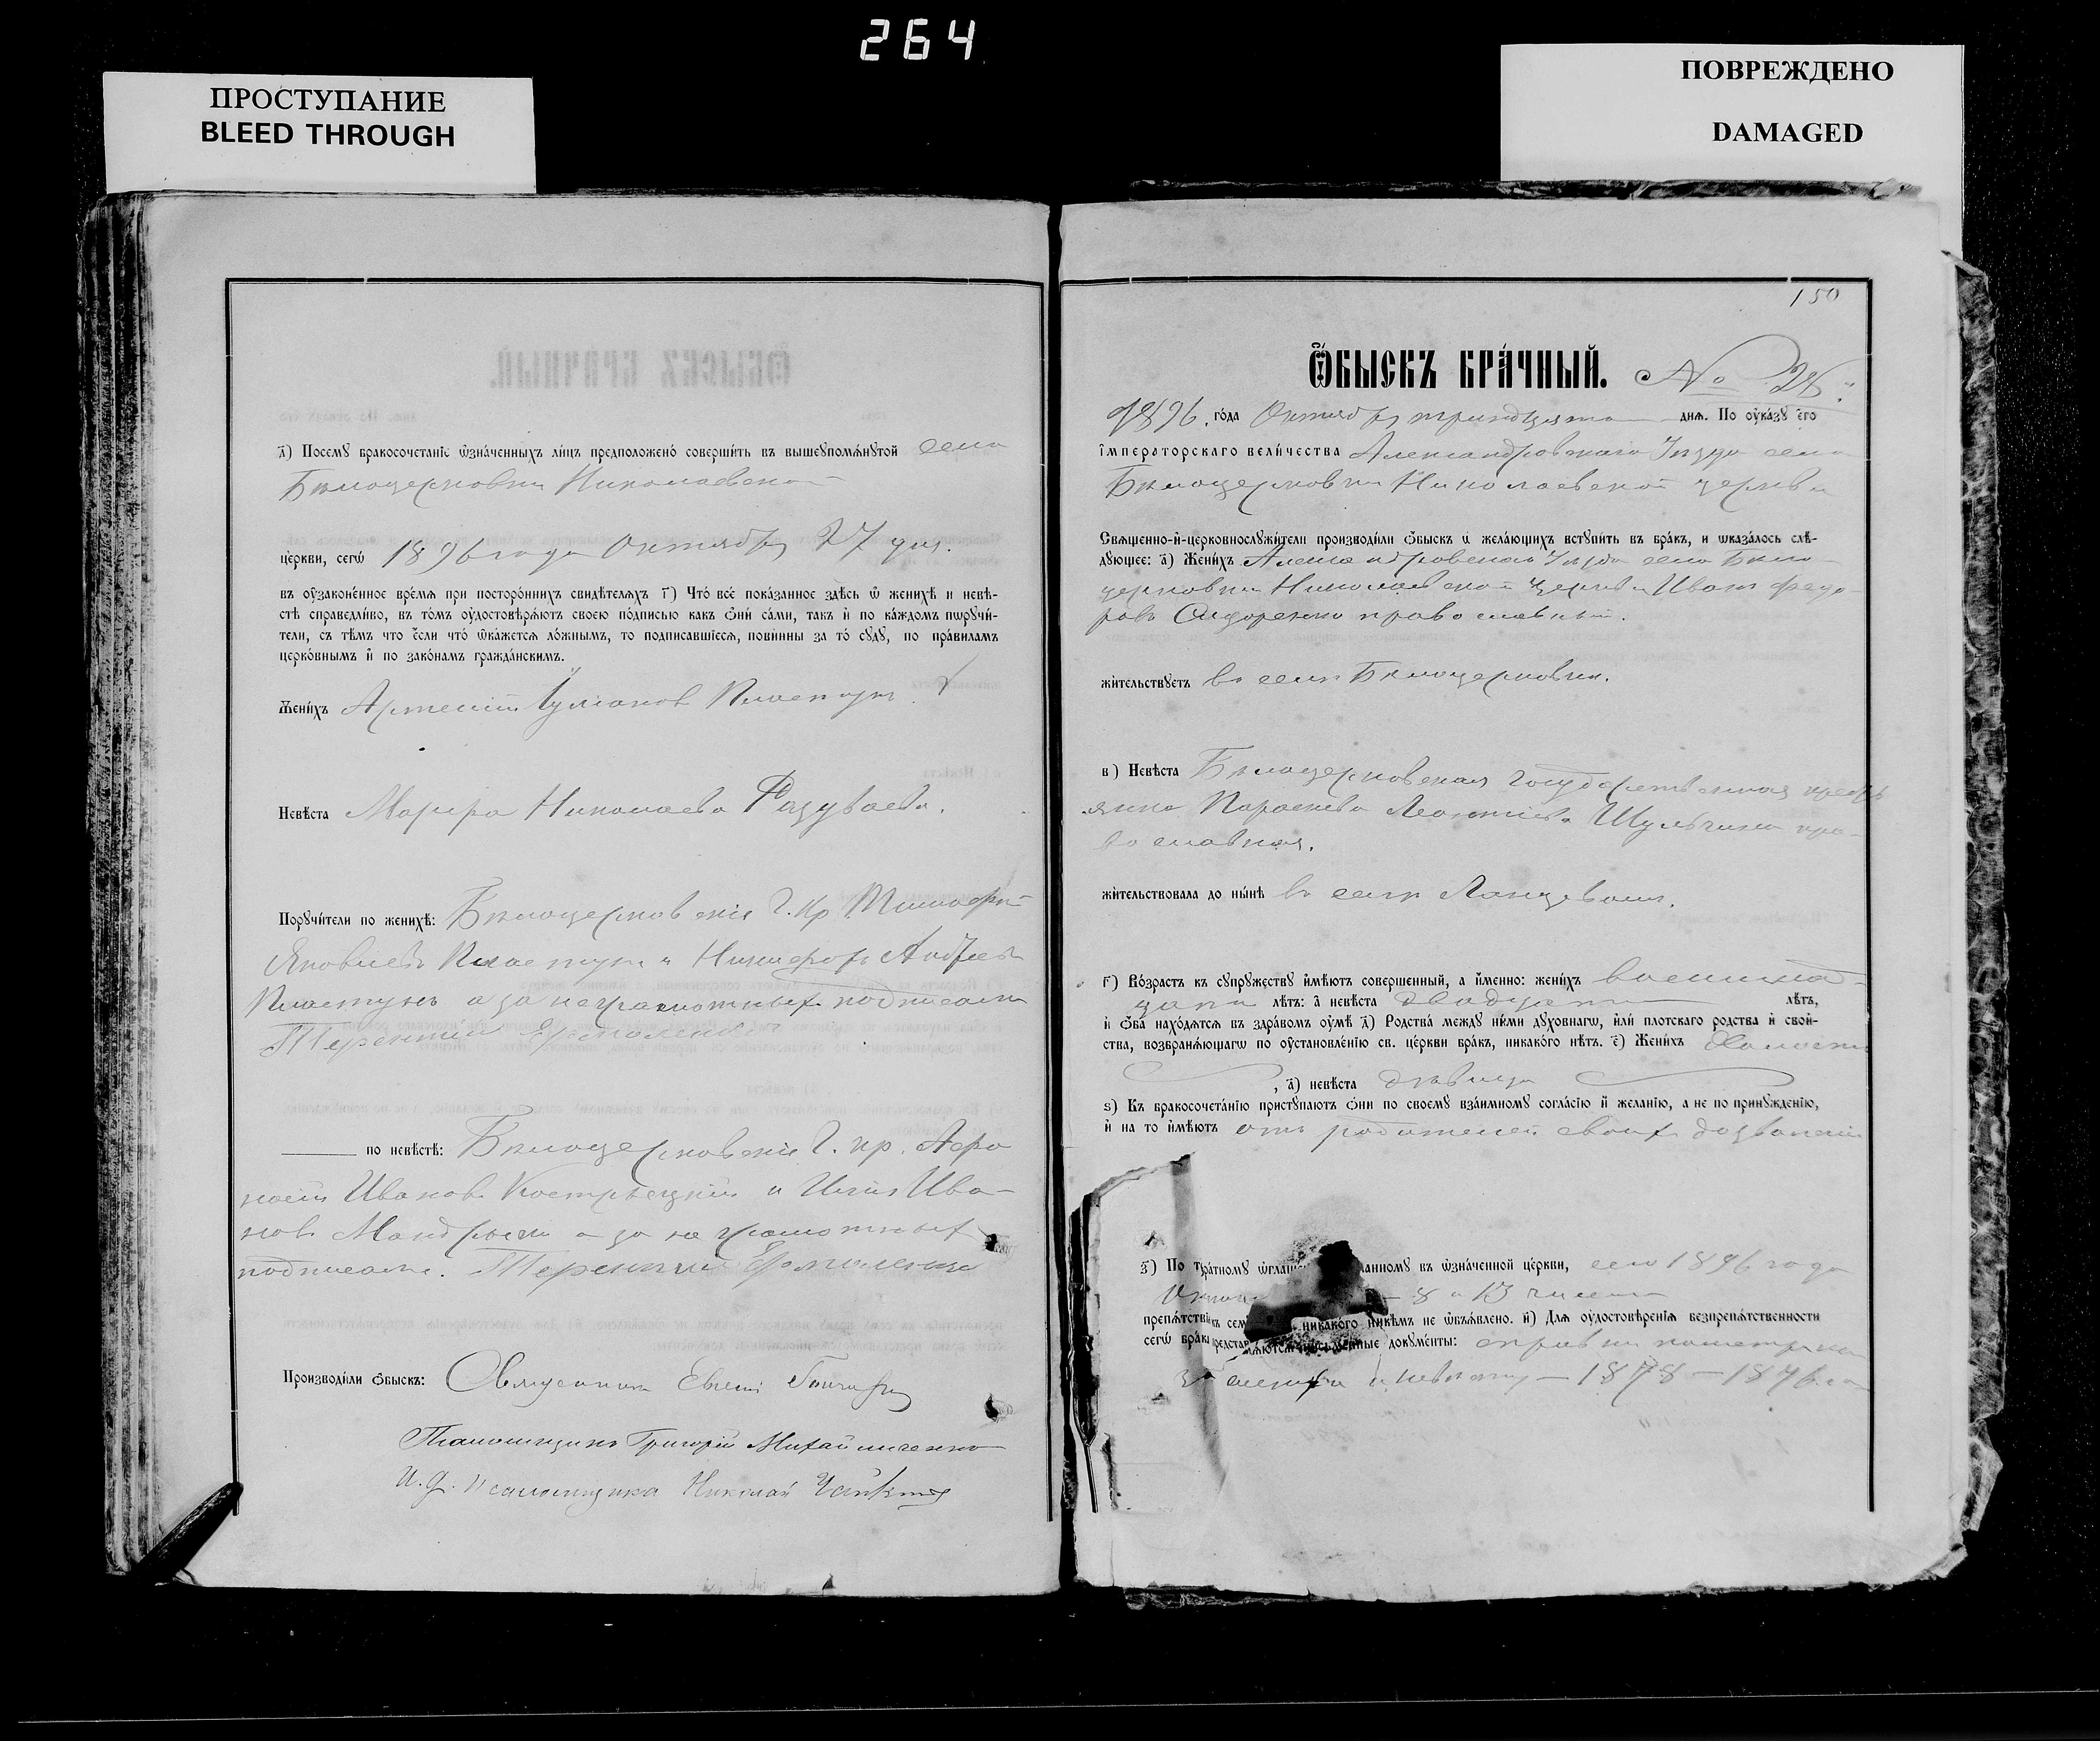 264
ПРОСТУПАНИЕ
BLEED THROUGH
ПОВРЕЖДЕНО
DAMAGED
д҃) Посемꙋ бракосочетаніе ѡзначенныхъ лицъ предположено совершить въ вышеꙋпомянꙋтой села
Бѣлоцерковки Николаевской
церкви, сегѡ 1896 года Октября 27 дня.
въ ꙋзаконенное время при постороннихъ свидѣтеляхъ г҃) Что все показанное здѣсь ѡ женихѣ и невѣ-
стѣ справедливо, въ томъ ꙋдостовѣряютъ своею подписью какъ ѻни сами, такъ и по каждомъ пѡрꙋчи-
тели, съ тѣмъ что если что ѡкажется ложнымъ, то подписавшіеся, повинны за то сꙋдꙋ, по правиламъ
церковнымъ и по законамъ гражданскимъ.
Женихъ Артемій Іуліановъ Пластунъ
Невѣста Марѳа Николаева Разуваева.
Порꙋчители по женихѣ: Бѣлоцерковскіе Г. кр. Тимофей
Яковлевъ Пластунъ и Никифоръ Андреевъ
Пластунъ а за неграмотныхъ подписалъ
Терентій Ермоленко
по невѣстѣ: Бѣлоцерковскіе Г. кр. Афа
насій Ивановъ Костръцкій и Илія Ива-
новъ Мандрыка а за не грамотныхъ
подписалъ. Терентій Ермоленко
Производили ѻбыскъ: Священникъ Евгеній
Псаломщикъ Григорій Михайличенко
И. д. псаломщика Николай
150
Ѻбыскъ брачный. № 28.
1896. года Октября тринадцатаго дня. По ꙋказꙋ его
императорскаго величества Александровскаго Уѣзда села
Бѣлоцерковки Николаевской церкви
Священно-и-церковнослꙋжители производили ѻбыскъ ѡ желающихъ встꙋпить въ бракъ, и ѡказалось слѣ-
дꙋющее: а҃) Женихъ Александровскаго Уѣзда села Бѣло-
церковки Николаевской церкви Иванъ Федо-
ровъ Сидоренко православный.
жительствꙋетъ въ селѣ Бѣлоцерковки.
в҃) Невѣста Бѣлоцерковская Государственная кресть
янка Параскева Леонтіева Шульгина пра-
во славная.
жительствовала до нынѣ въ селѣ
г҃) Возрастъ къ сꙋпрꙋжествꙋ имѣютъ совершенный, а именно: женихъ восемнад-
цати лѣтъ: а невѣста двадцати лѣтъ,
и ѻба находятся въ здравомъ ꙋмѣ д҃) Родства междꙋ ними дꙋховнагѡ, или плотскаго родства и свой-
ства, возбраняющагѡ по ꙋстановленію св. церкви бракъ, никакого нѣтъ. е҃) Женихъ Холостъ
, а҃) невѣста дѣвица
ѕ҃) Къ бракосочетанію пристꙋпаютъ ѻни по своемꙋ взаимномꙋ согласію и желанію, а не по принꙋжденію,
и на то имѣютъ отъ родителей своихъ дозволеніе
з҃) По ѡзначенной церкви, сего 1896 года
8 и 13 числа
препятствія никакого никѣмъ не ѡбъявлено. и҃) Для ꙋдостовѣренія безпрепятственности
сегѡ брака докꙋменты: справки пометрика
за жениха и невѣсту — 1878 — 1876